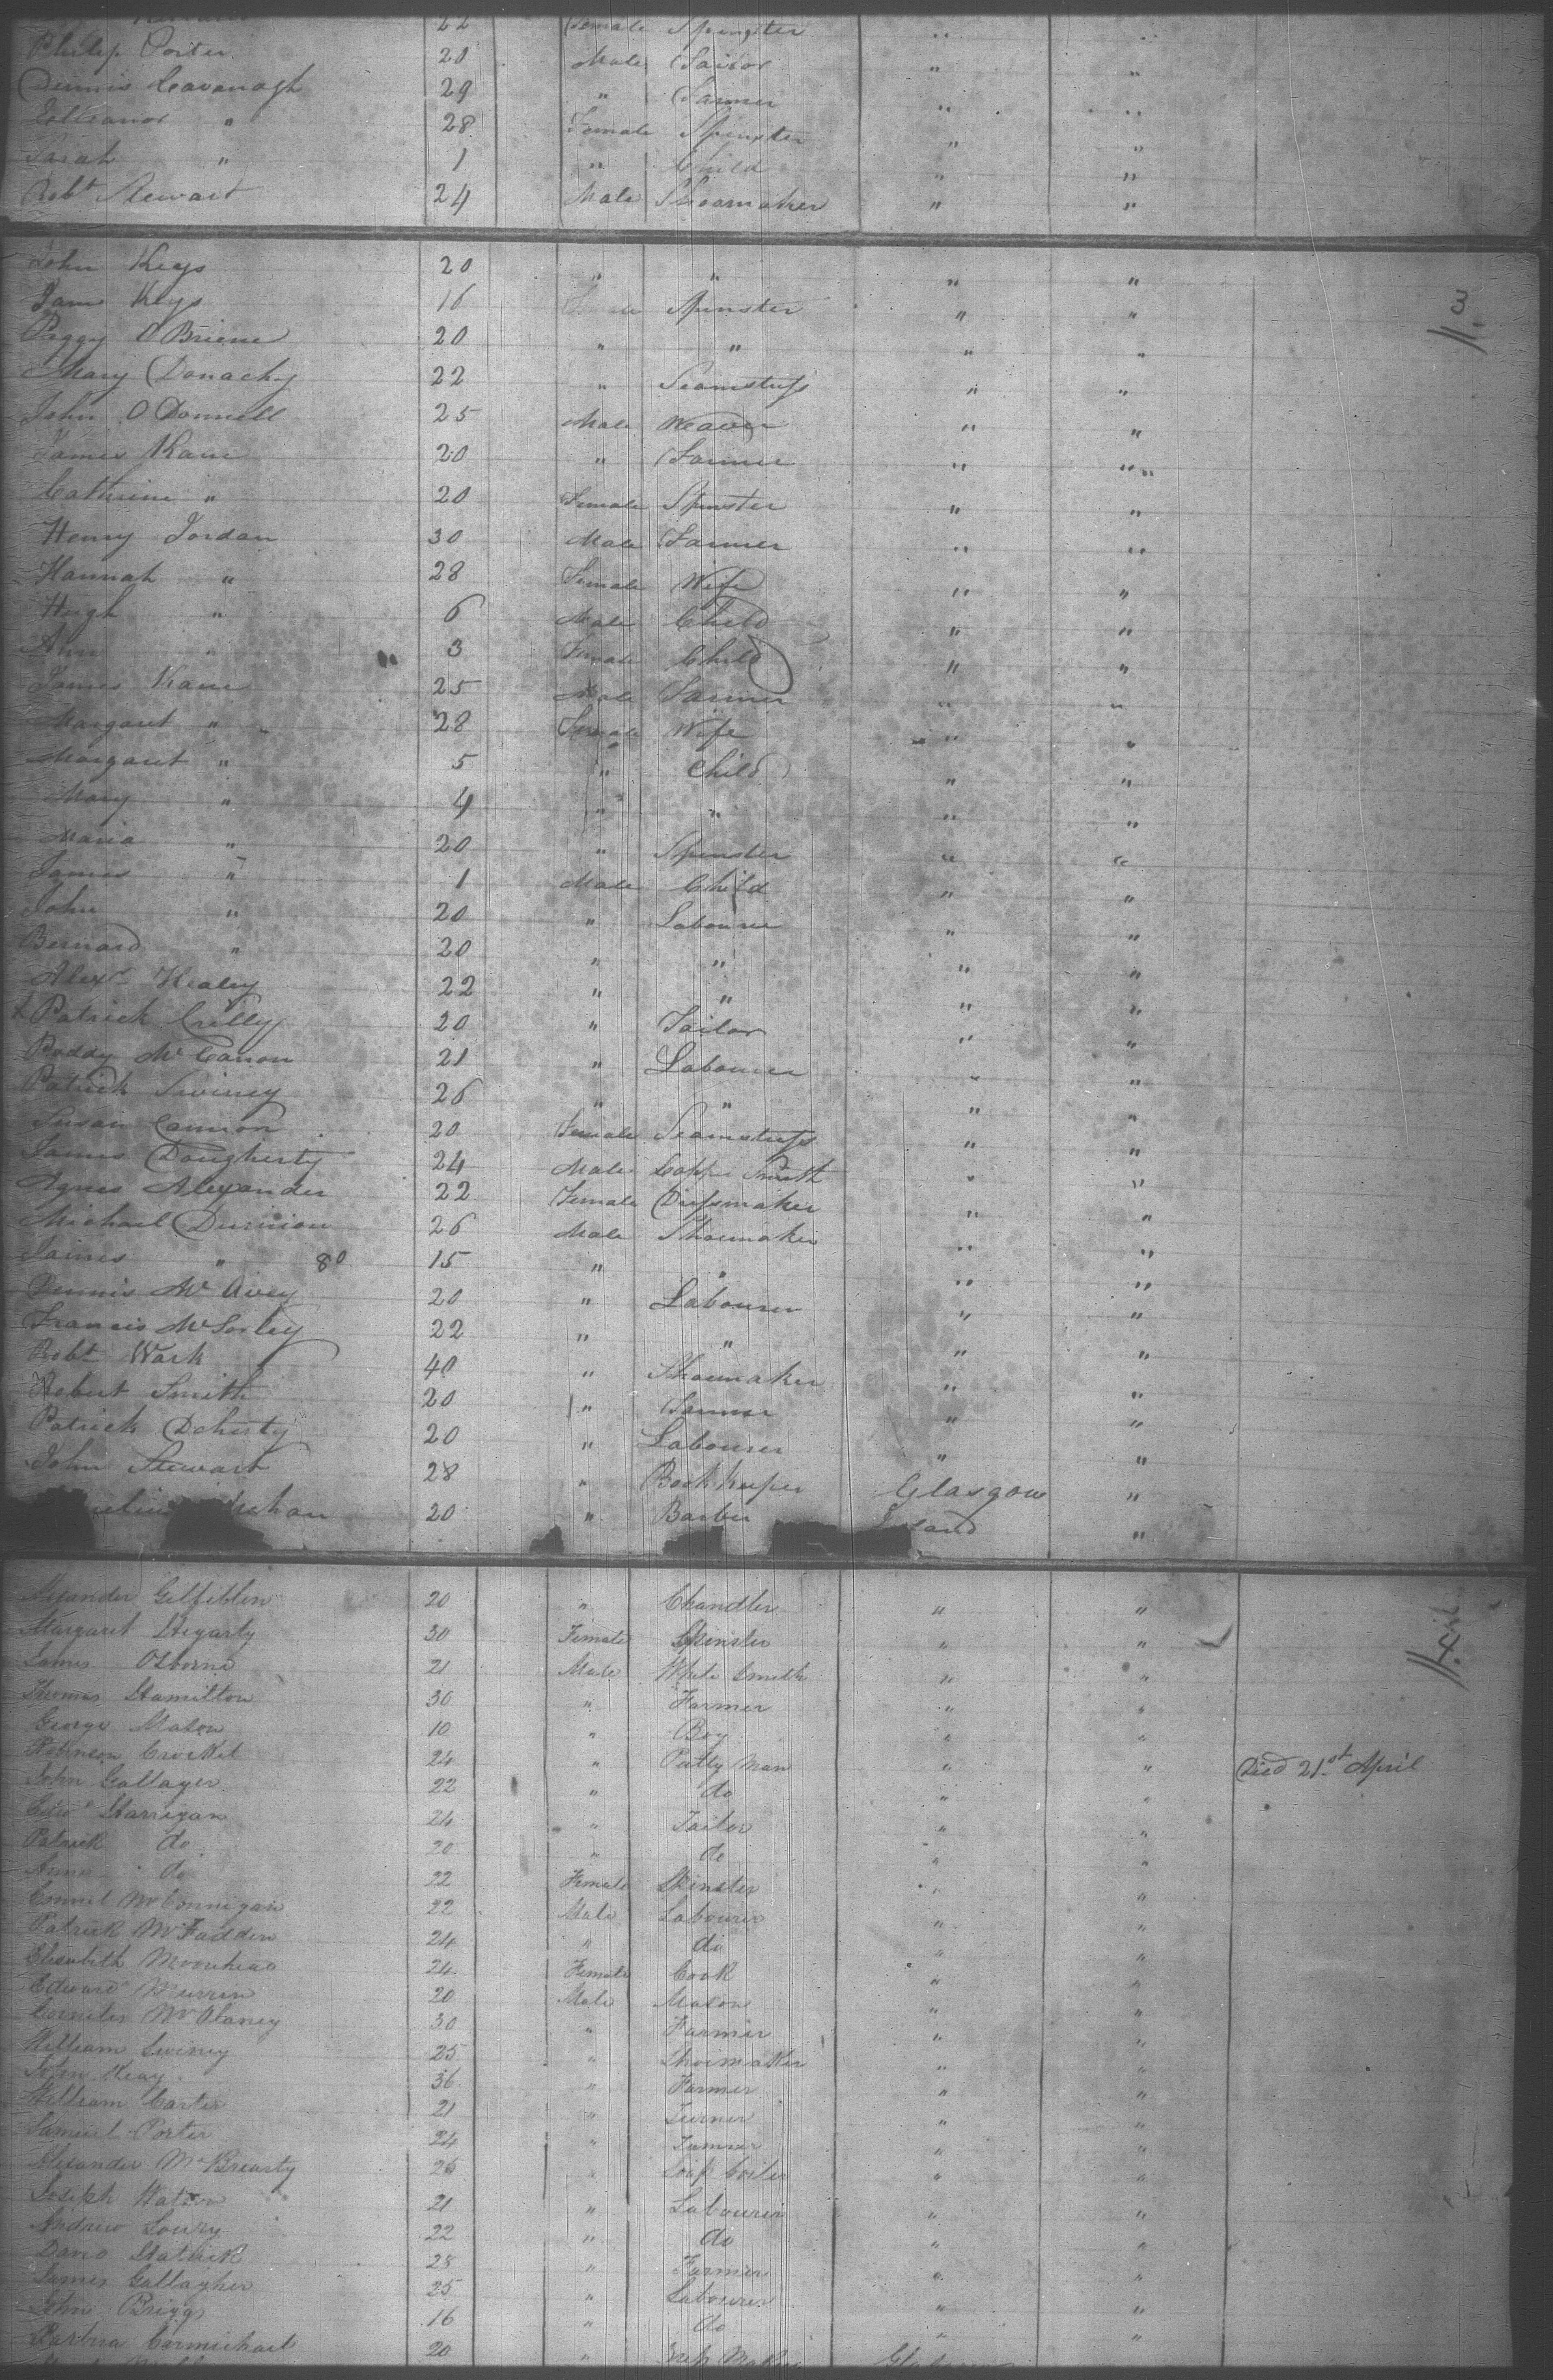 22 Female Spinster " "
Philip Porter 20 Male Tailor " "
Dennis Cavanagh 29 " Farmer " "
Elleanor " 28 Female Spinster " "
Sarah " 1 " Child " "
Robt Stewart 24 Male Shoamaker " "
John Keys 20 " " " "
Jane Keys 16 Female Spinster " "
3
Peggy O Briene 20 " " " "
Mary Donachy 22 " Seamstress " "
John O Donnell 25 Male Weaver " "
James Kane 20 " Farmer " "
Catherine " 20 Female Spinster " "
Henry Jordan 30 Male Farmer " "
Hannah " 28 Female Wife " "
Hugh " 6 Male Child " "
Ann " 3 Female Child " "
James Kane 25 Male Farmer " "
Margaret " 28 Female Wife " "
Margaret " 5 " Child " "
Mary " 4 " " " "
Maria " 20 " Spinster " "
James " 1 Male Child " "
John " 20 " Labourer " "
Bernard " 20 " " " "
Alexr Healey 22 " " " "
Patrick Crilly 20 " Tailor " "
Paddy Mc Canon 21 " Labourer " "
Patrick Swiney 26 " " " "
Susan Cannon 20 Female Seamstress " "
James Dougherty 24 Male Copper Smith " "
Agnes Alexander 22 Female Dressmaker " "
Michael Dunnion 26 Male Shoemaker " "
James " 80 15 " " " "
Dennis Mc Avey 20 " Labourer " "
Francis McSorley 22 " " " "
Robt Wark 40 " Shoemaker " "
Robert Smith 20 " Farmer " "
Patrick Doherty 20 " Labourer " "
John Stewart 28 " Book Keeper Glasgow "
20 " Barber "
20 " Chandler " "
Margaret Hegarty 30 Female Spinster " "
4
James Osborne 21 Male White Smith " "
Thomas Hamilton 30 " Farmer " "
George Mason 10 " Boy " "
Robinson Crocket 24 " Putty Man " " Died 21st April
John Gallager 22 " do " "
Edwd Harrigan 24 " Tailor " "
Patrick do 20 " do " "
Anne do 22 Female Spinster " "
Connel McConnigan 22 Male Labourer " "
Patrick McFadden 24 " do " "
Elesabith Moorhead 24 Female Cook " "
Edward 20 Male Mason " "
30 " Farmer " "
William Swiney 25 " Shoimaker " "
John Keay 36 " Farmer " "
William Carter 21 " Turner " "
Samuel Porter 24 " " "
Alexander McBrearty 26 " Soap boiler " "
Joseph Watson 21 " Labourer " "
Andrew Loury 22 " do " "
28 " Farmer " "
James Gallagher 25 " Labourer " "
John Briggs 16 " do " "
Carmichael 20 "